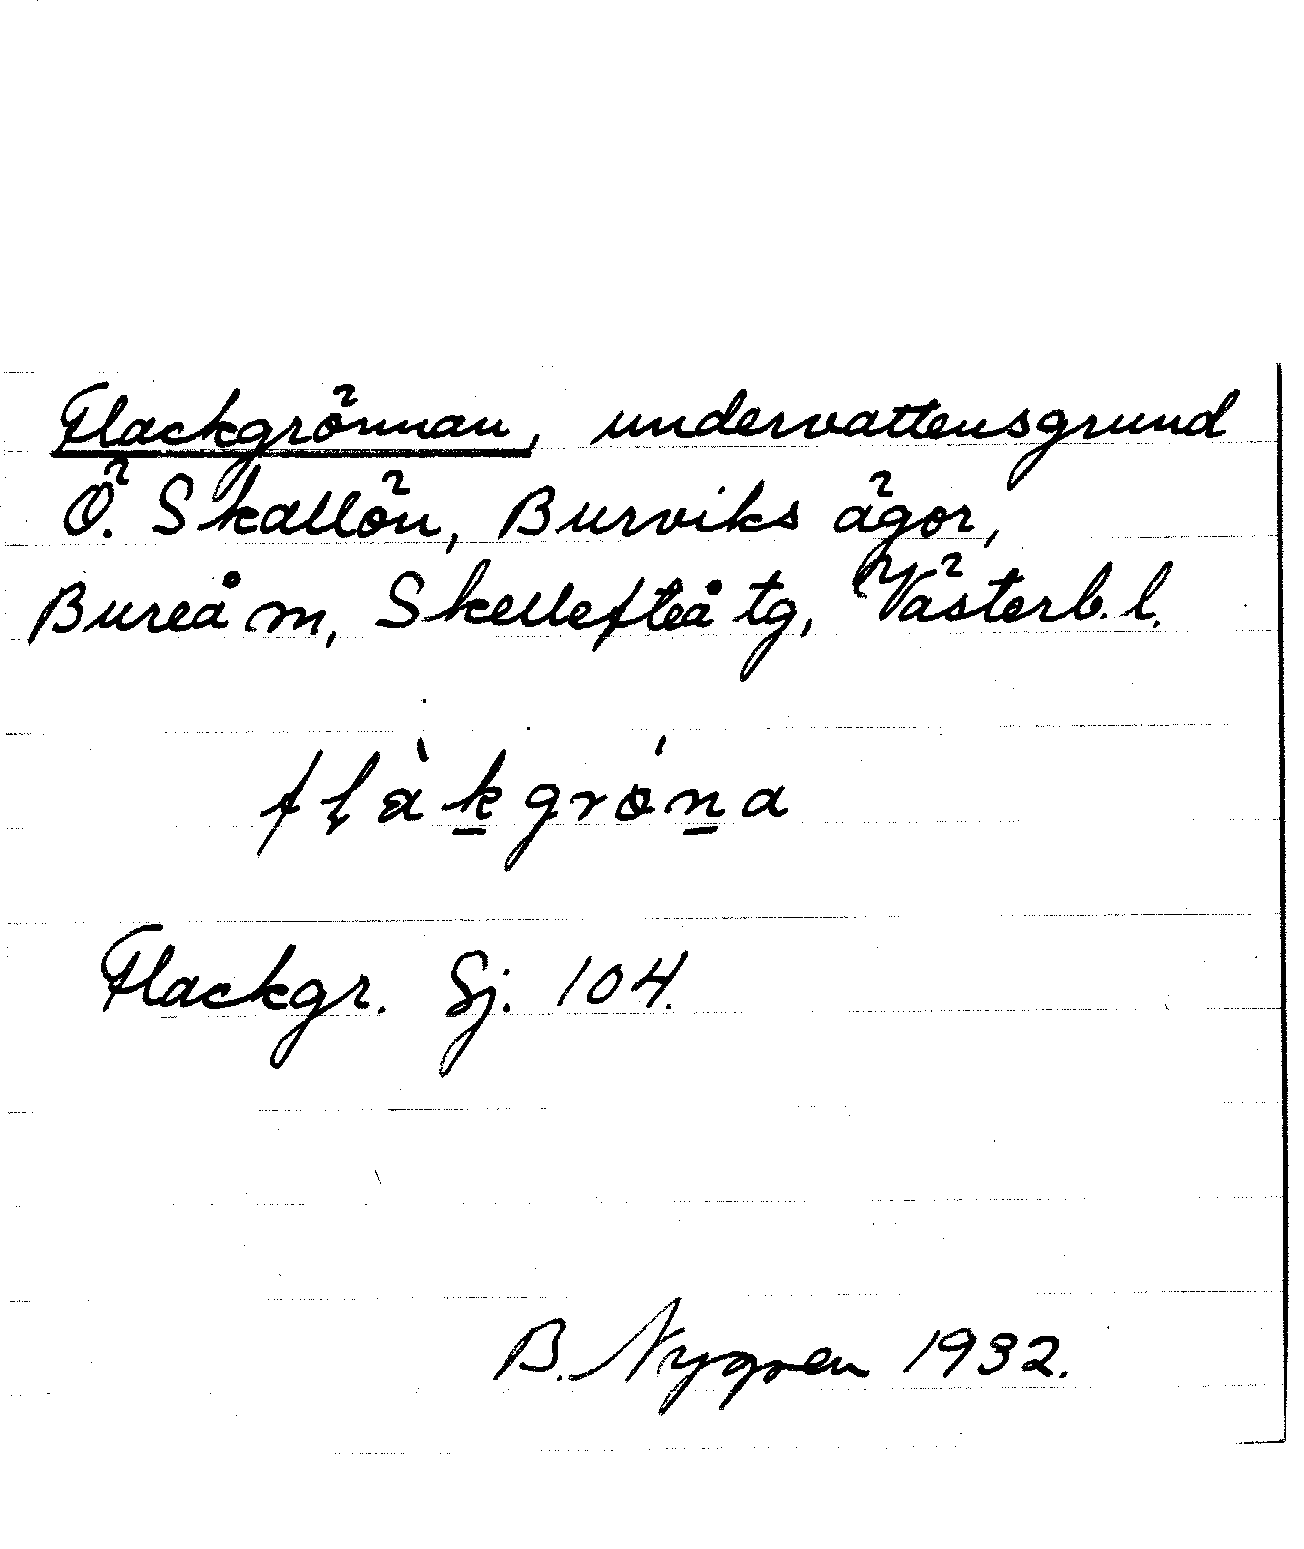 Flackgrönnan, undervattensgrund
Ö. Skallön, Burviks ägor,
Bureå m, Skellefteå tg, Västerb. l.
flàk̲grón̲a
Flackgr. Sj. 104.
B. Nygren 1932.